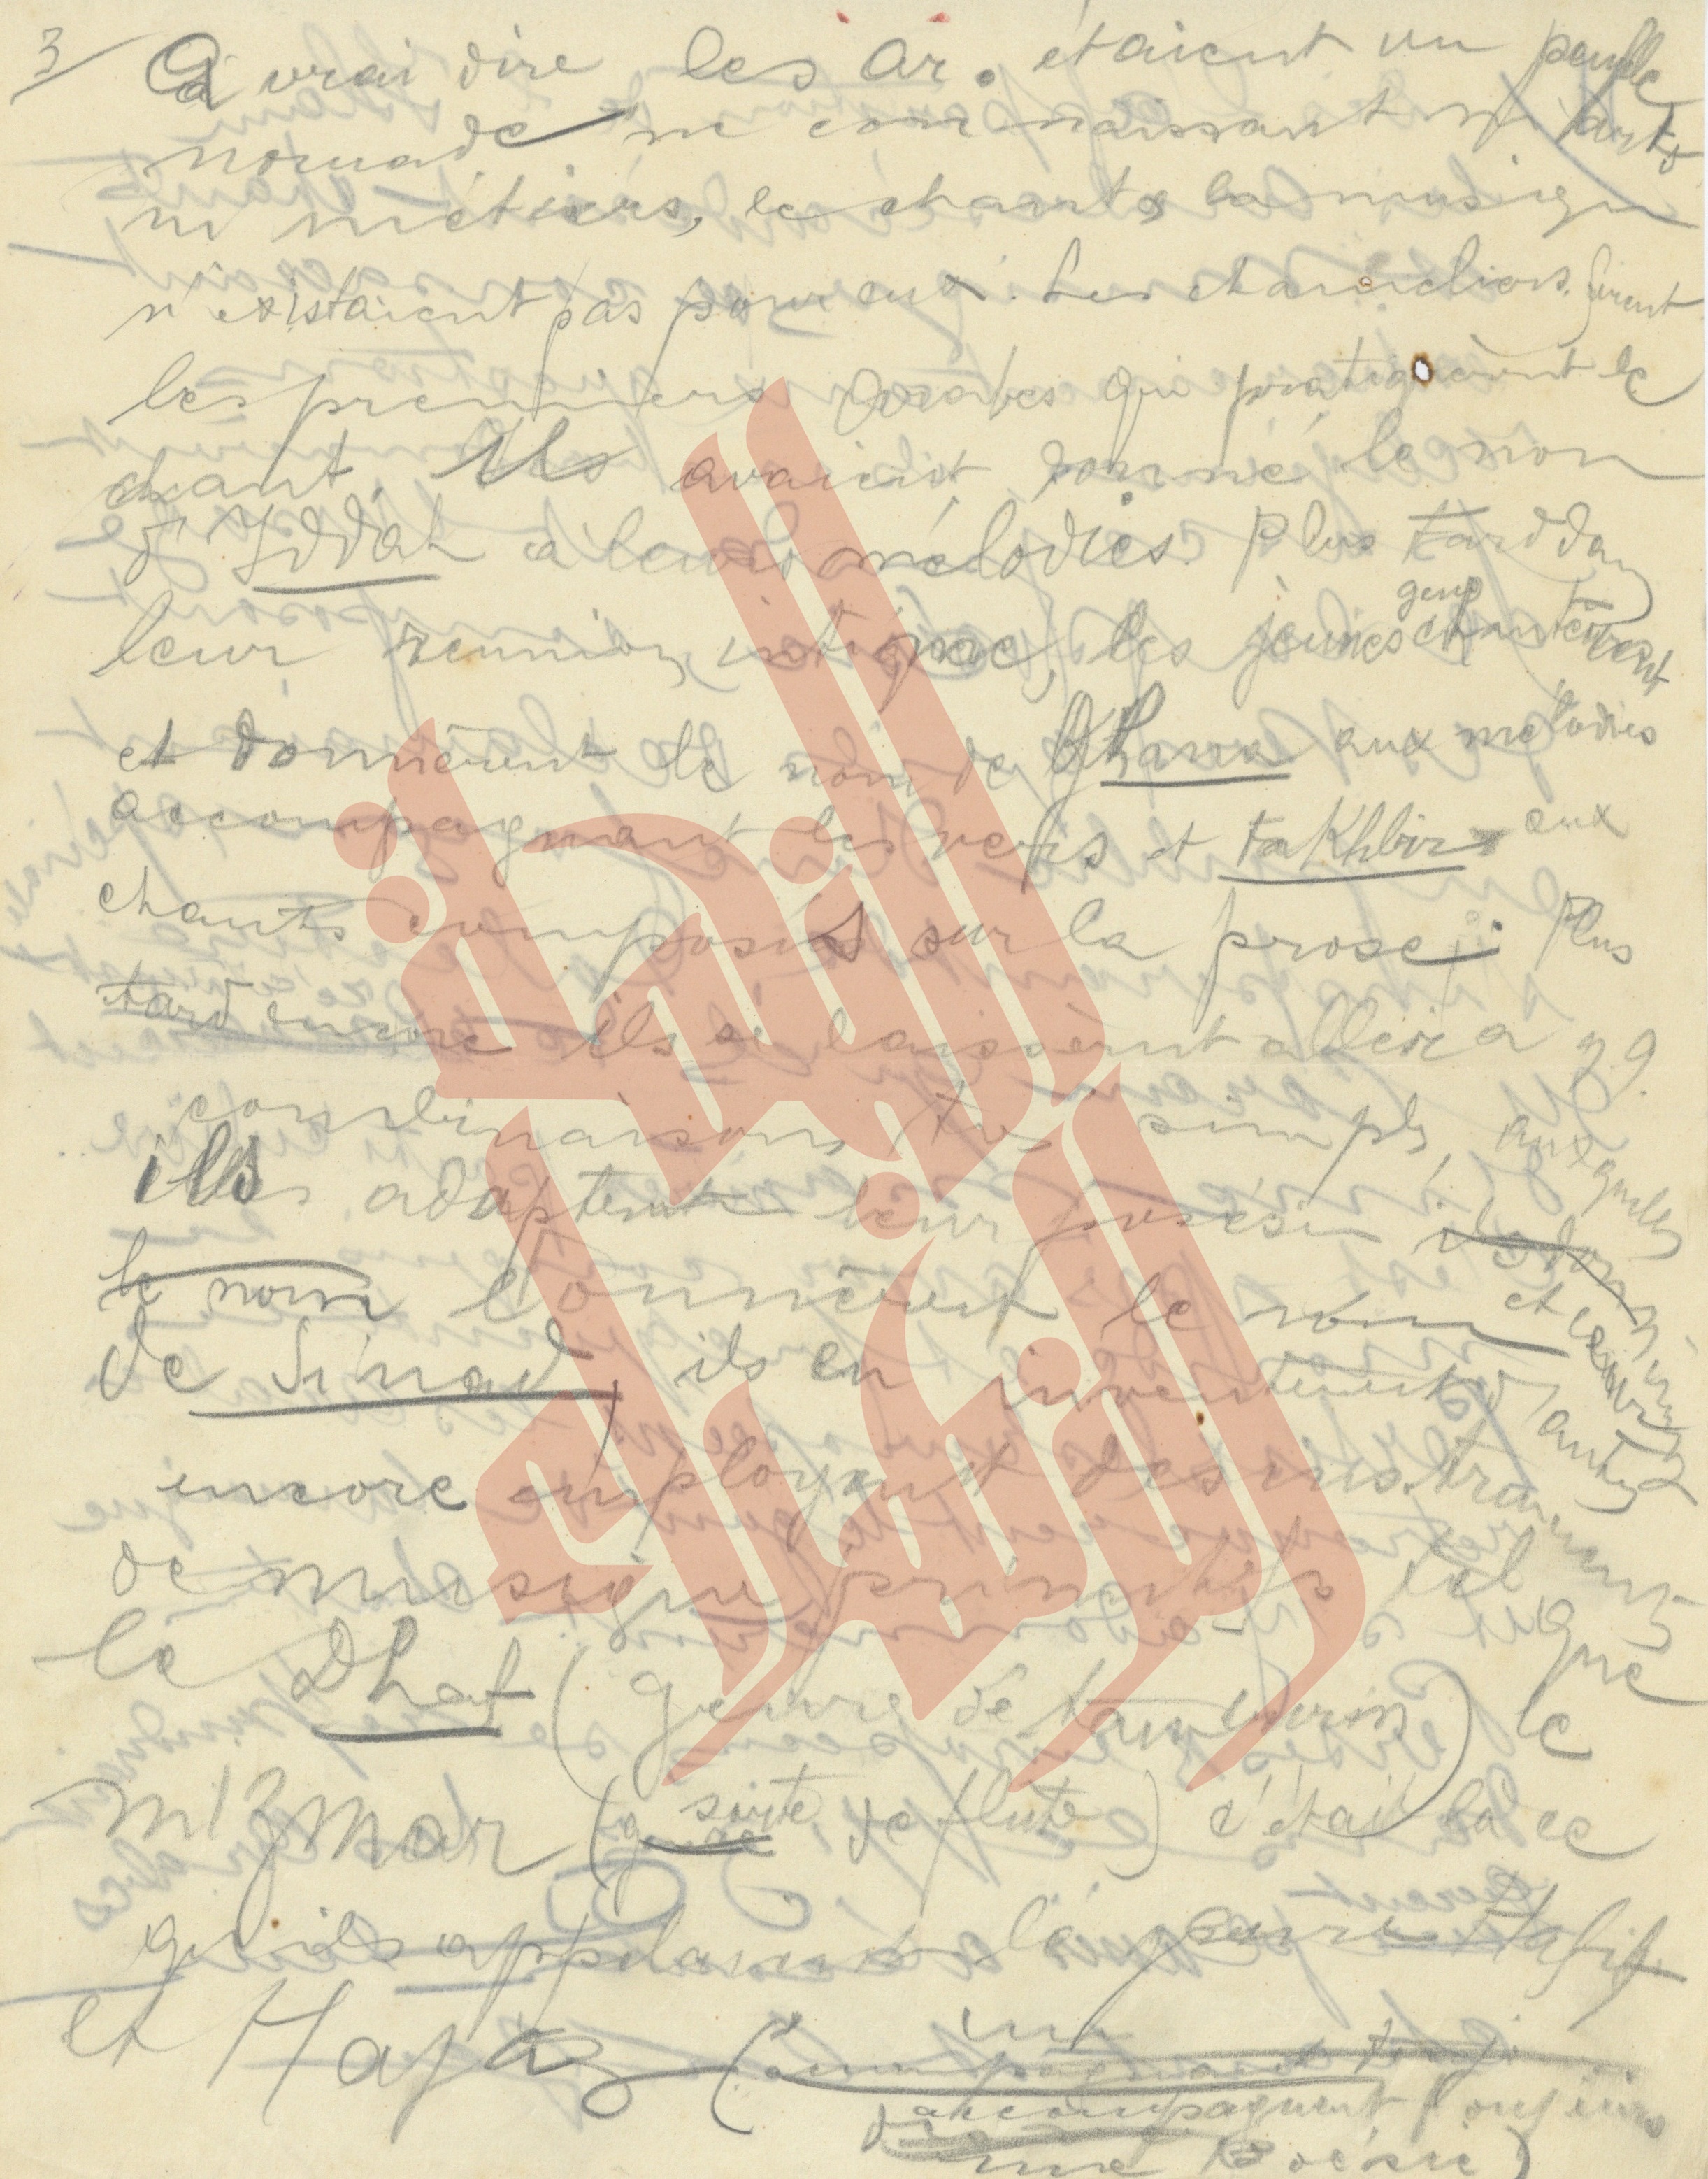 3/ A vrai dire les Ar. étaient un peuple
nomade ne connaissant ni arts
ni métiers, le chant & la musique
n'existaient pas pour eux. Les chameliers furent
les premiers arabes qui pratiquèrent le
chant. Ils avaient donné le nom
d'Iddah à leurs mélodies. Plus tard dans
leur reunion intime, les jeunes gens chantèrent
et donnèrent le nom de Ghana aux mélodies
accompagnant les vers et takhbir aux
chants composés sur la prose; Plus
tard encore ils se laissèrent aller a qq.
combinaisons très simples, auxquelles
ils adaptèrent leur poésie ils donnèrent
le nom donnèrent le nom et
de Sinad, ils en inventèrent d'autres
encore employant des instruments
de musique primitifs tel que
le Dhaf (genre de tambourin) le
mizmar (genre sorte de flute) c'était là ce
qu'ils appelaient le genre Hafif
et Hajaz (
accompagnant
accompagnent toujours
une Poésie)